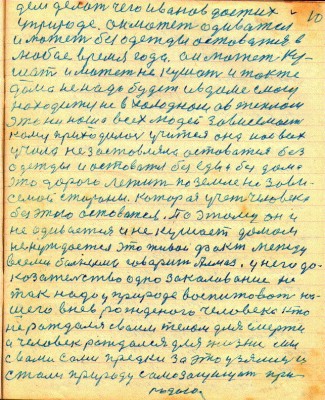 10
дем делат чего иванов достих
у природе. он может одиватся
и может без одежды оставатся в
любое время года. он может ку-
шат и может не кушат и также
дома не надо будет и в доме смогу
находится не в холодном а в теплом
это ни наша всех людей зависемаст
кому приходилос учится она нас всех
учила не заставляла оставатся без
одежды и оставатся без еды и без дома
это дорога лежит по земле не зави-
семой стараны. которая учит человека
без этого оставатся. Поэтому он и
не одивается и не кушает домом
не нуждается это живой факт между
всеми болными говарит Алмаз. у него до-
казателство одно закаливание не
так надо у природе воспитоват на-
шего вневь рожденого человека кто
не рождался своим телом для смерти
а человек рождался для жизни мы
с вами сами предки за это узялис и
стали природу самозащищат при-